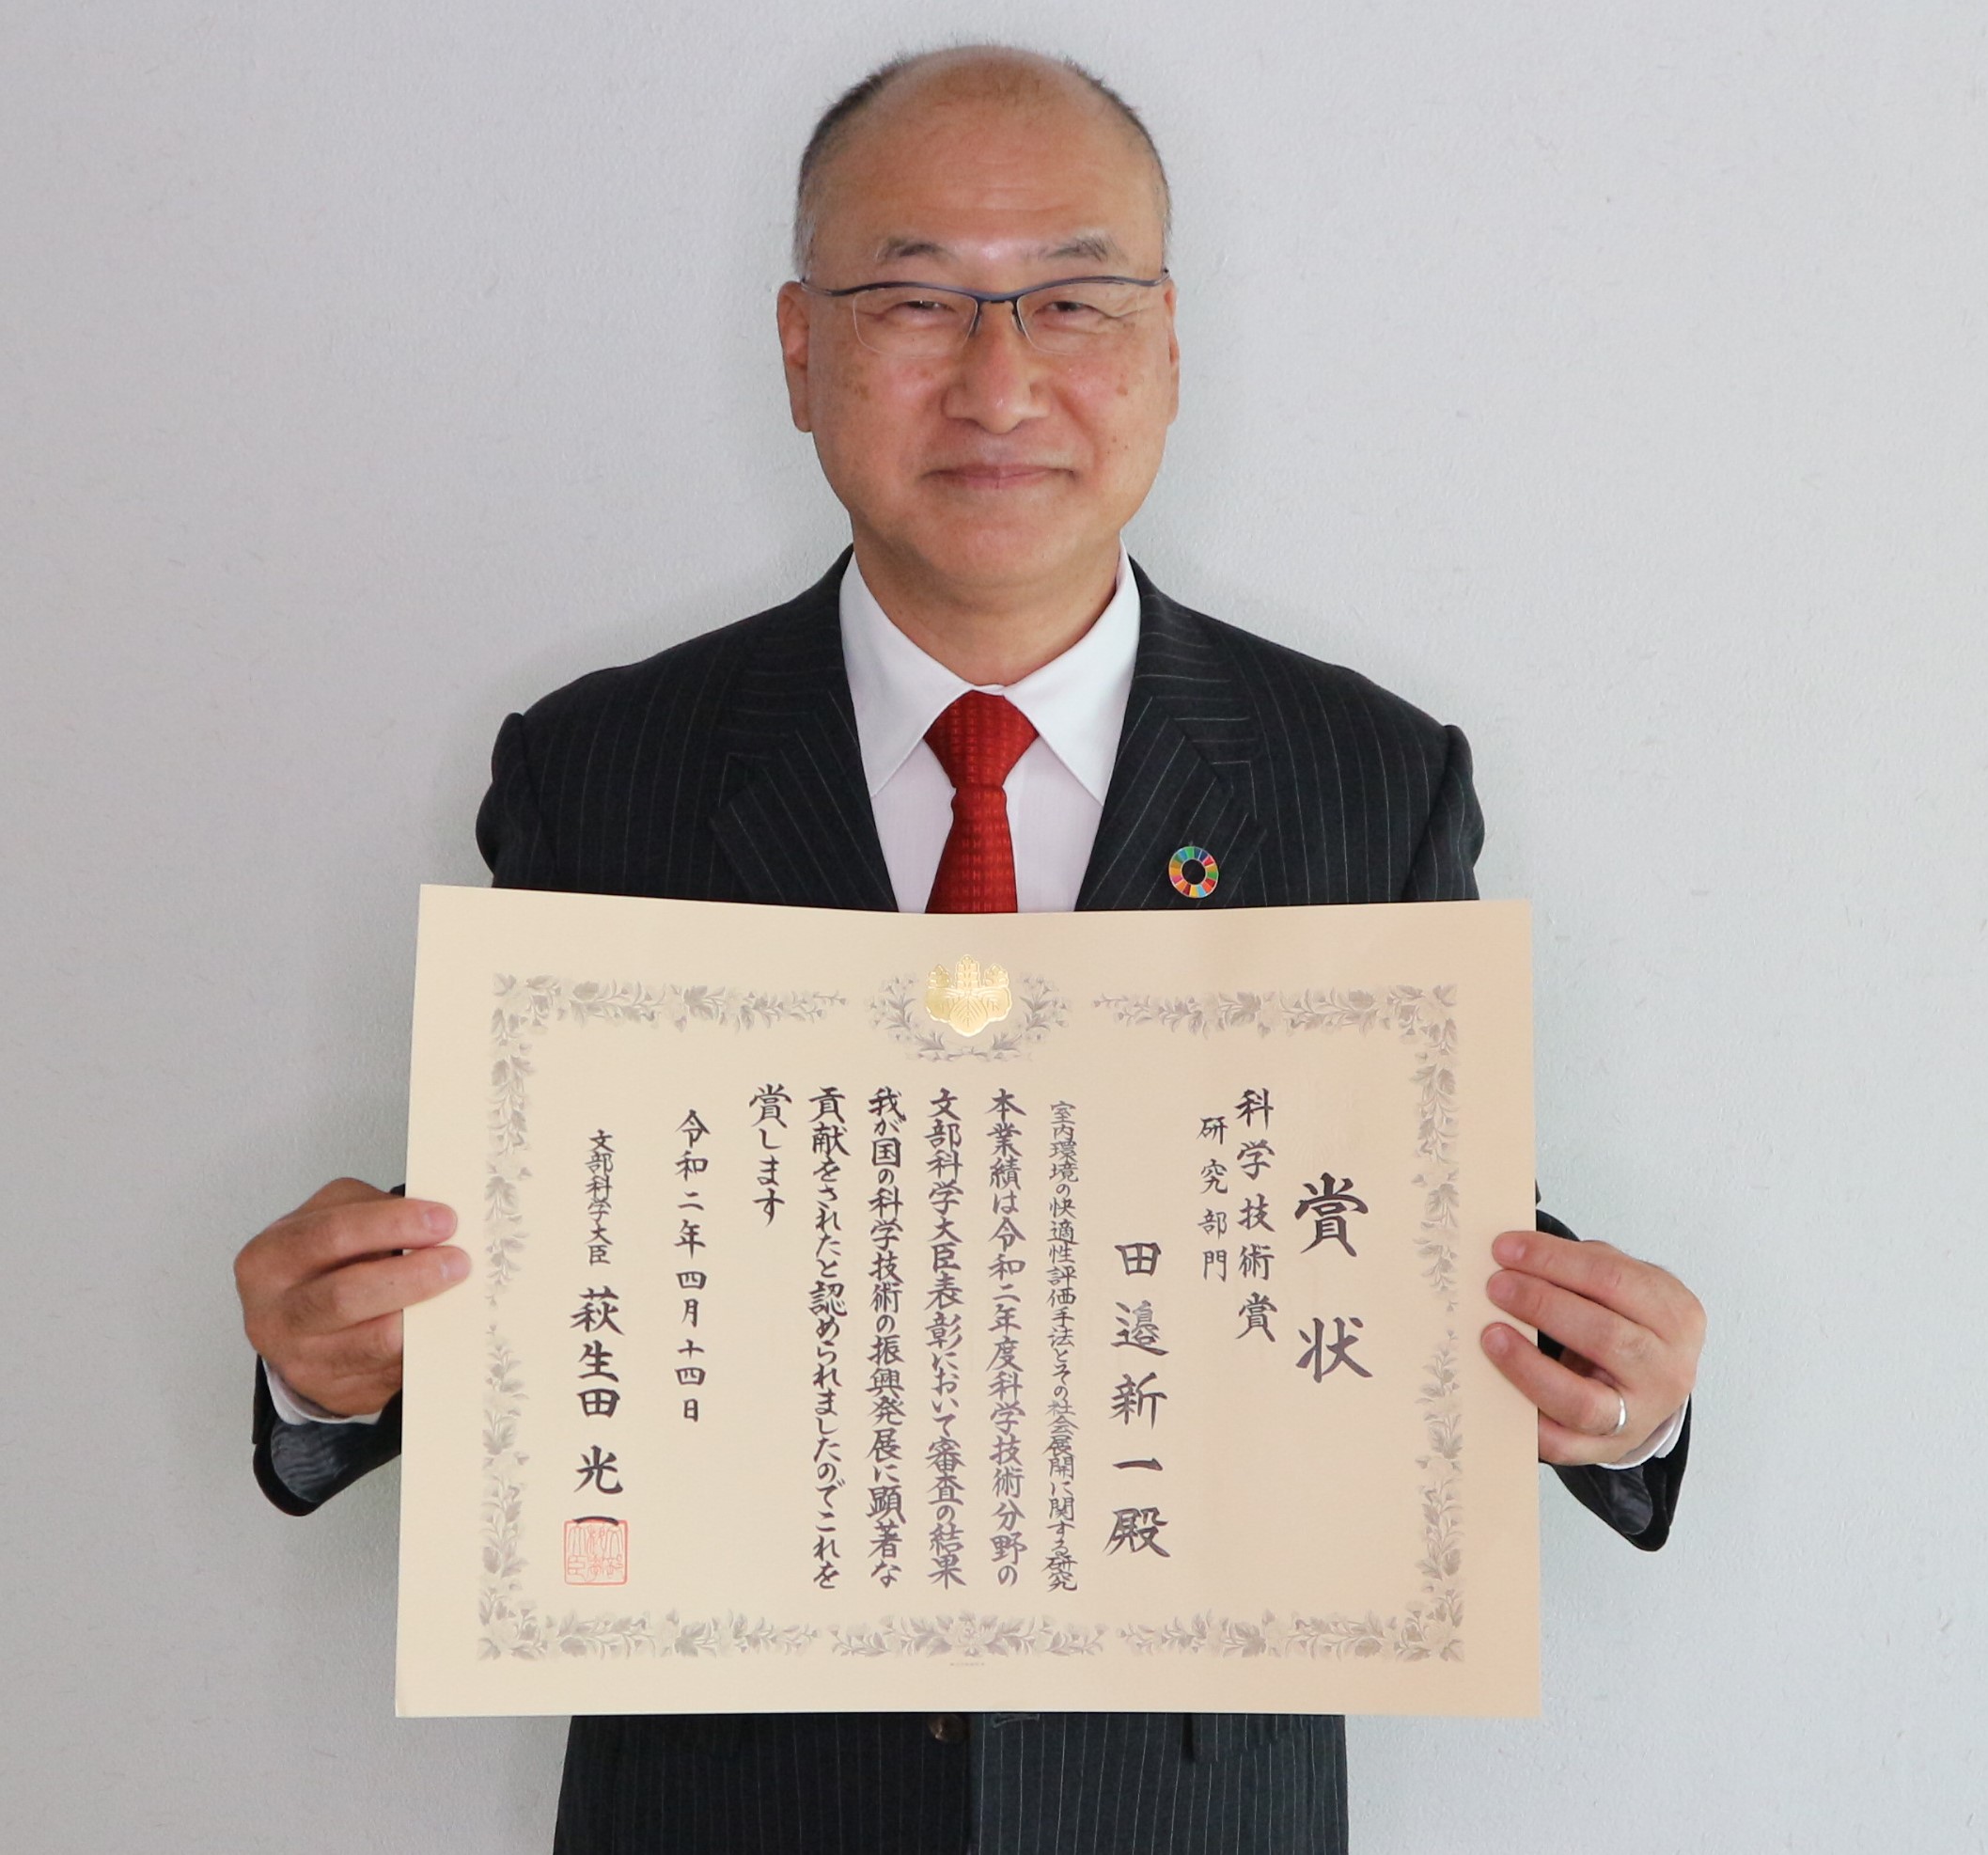 賞状
科学技術賞
研究部門
田邉新一殿
室内環境の快適性評価手法とその社会展開に関する研究
本業績は令和二年度科学技術分野の
文部科学大臣表彰において審査の結果
我が国の科学技術の振興発展に顕著な
貢献をされたと認められましたのでこれを
賞します
令和二年四月十四日
文部科学大臣 萩生田光一